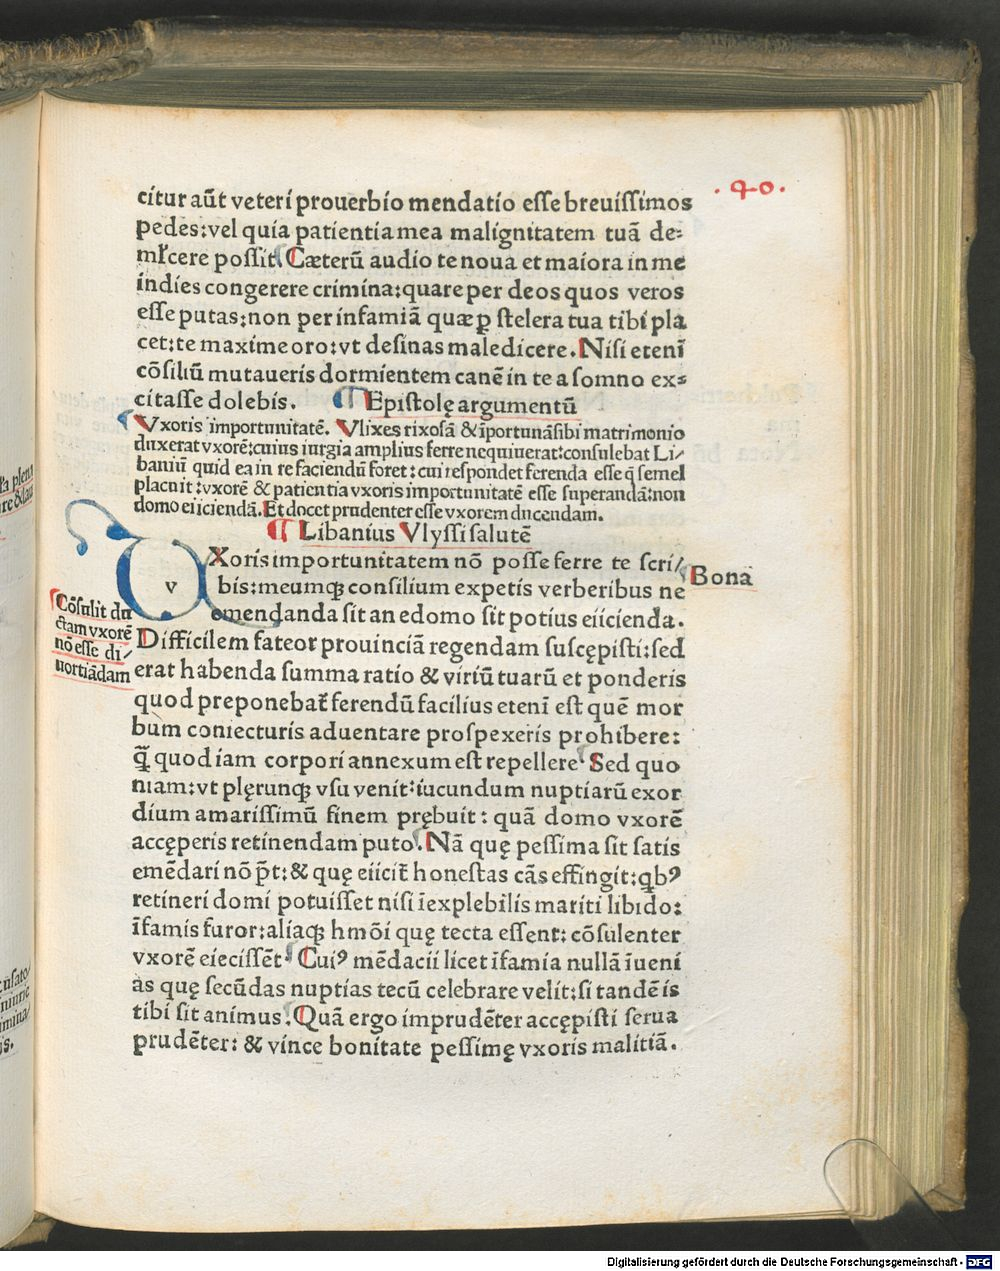 .40.
citur aūt veteri prouerbio mendatio esse breuissimos
pedes: vel quia patientia mea malignitatem tuā de⸗
mr̄cere possit. Cæterū audio te noua et maiora in me
indies congerere crimina: quare per deos quos veros
esse putas: non per infamiā quæ ꝑ stelera tua tibi pla
cet: te maxime oro: vt desinas maledicere. Nisi etenī
cōsiliū mutaueris dormientem canē in te a somno ex⸗
citasse dolebis. ¶ Epistolę argumentū
Vxoris importunitatē. Vlixes rixosā & īportunā sibi matrimonio
duxerat vxorē: cuius iurgia amplius ferre nequiuerat: consulebat Li/
baniū quid ea in re faciendū foret: cui respondet ferenda esse q̄ semel
placuit: vxorē & patientia vxoris importunitatē esse superandā: non
domo eiiciendā. Et docet prudenter esse vxorem ducendam.
¶ Libanius Vlyssi salutē
VXoris importunitatem nō posse ferre te scri/
bis: meumqꝫ consilium expetis verberibus ne
emendanda sit an edomo sit potius eiicienda.
Difficilem fateor prouinciā regendam suscępisti: sed
erat habenda summa ratio & viriū tuarū et ponderis
quod preponebat̄ ferendū facilius etenī est quē mor
bum coniecturis aduentare prospexeris prohibere:
q̄ꝫ quod iam corpori annexum est repellere. Sed quo
niam: vt plęrunqꝫ vsu venit: iucundum nuptiarū exor
dium amarissimū finem prębuit: quā domo vxorē
accęperis retinendam puto. Nā quę pessima sit satis
emēdari nō p̄t: & quę eiicit̄ honestas cās effingit: qbꝰ
retineri domi potuisset nisi īexplebilis mariti libido:
īfamis furor: aliaqꝫ hmōi quę tecta essent: cōsulenter
vxorē eiecissēt. Cuiꝰ mēdacii licet īfamia nullā īueni
as quę secūdas nuptias tecū celebrare velit: si tandē is
tibi sit animus. Quā ergo imprudēter accępisti serua
prudēter: & vince bonitate pessimę vxoris malitiā.
Bona
Cōsulit du
ctam vxorē
nō esse di/
uortiādam
Digitalisierung gefördert durch die Deutsche Forschungsgemeinschaft - DFG